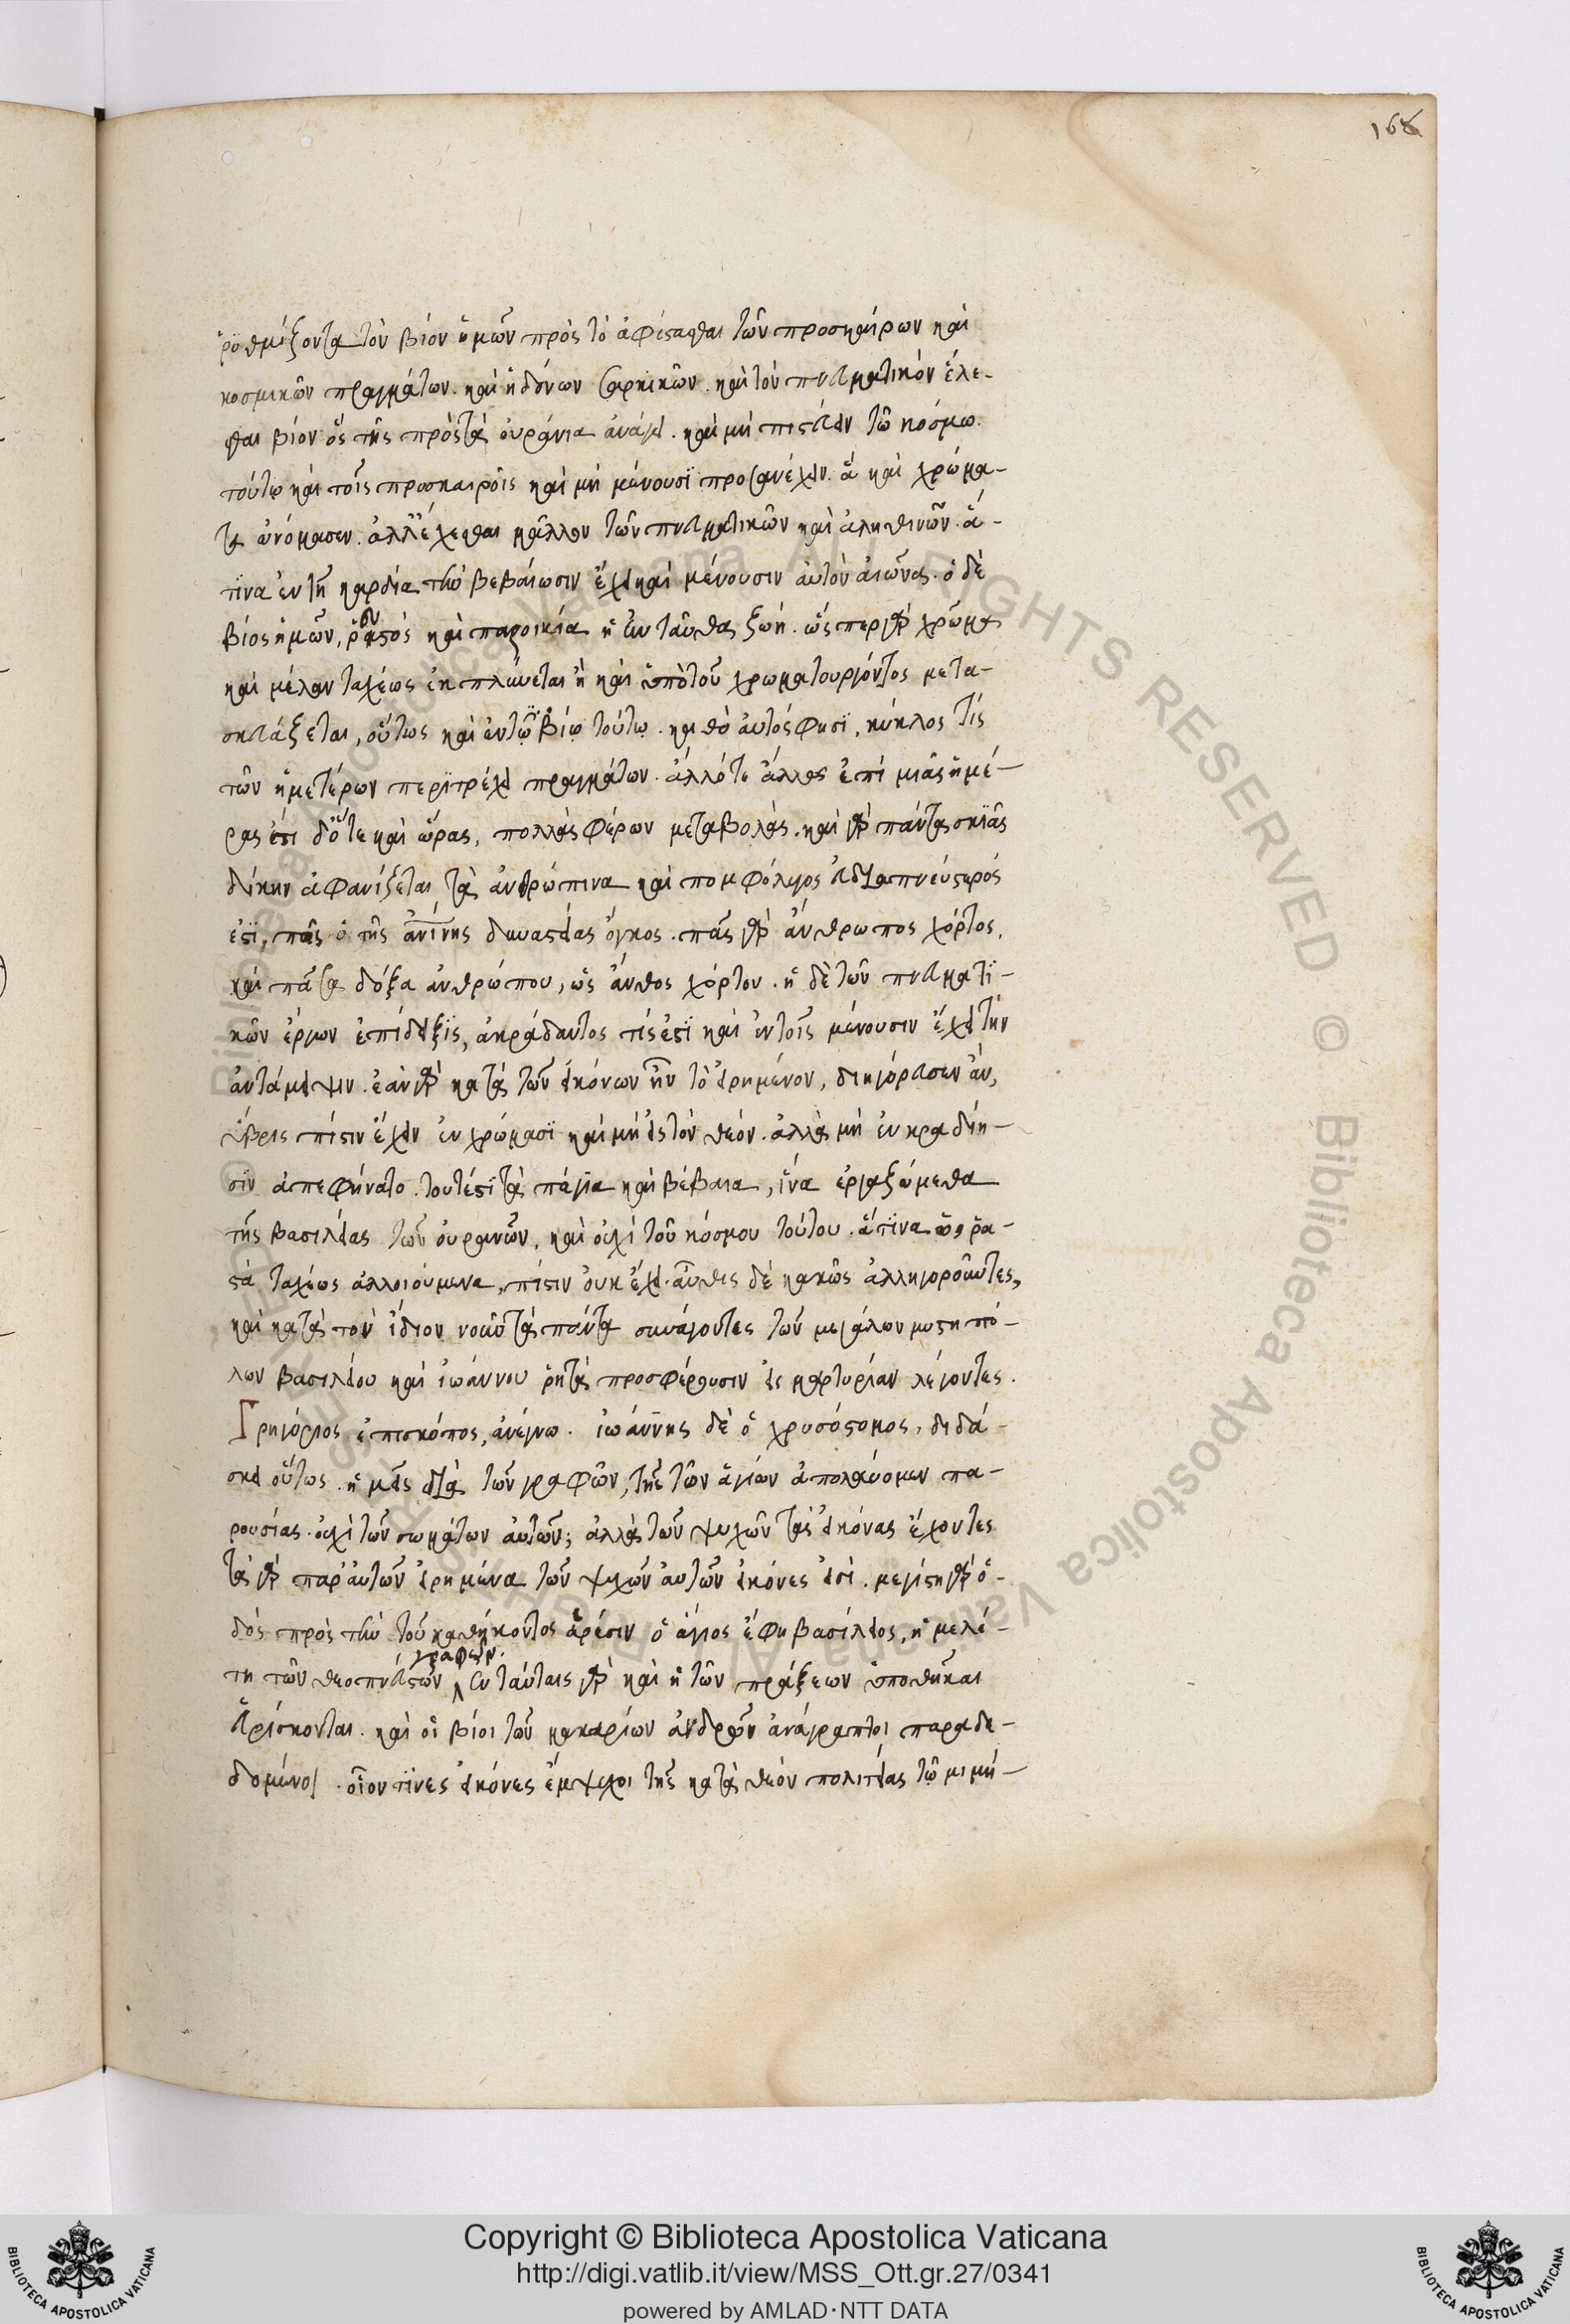 168
ῥυθμίζοντα τὸν βίον ἡμῶν πρὸς τὸ ἀφίστασθαι τῶν προσκαίρων καὶ
κοσμικῶν πραγμάτων. καὶ ἡδόνων σαρκικῶν. καὶ τὸν πνευματικὸν ἑλέ-
σθαι βίον ὃς τῆς πρὸς τὰ οὐράνια ἀνάγει. καὶ μὴ πιστεύειν τῶ κόσμω
τούτῳ καὶ τοῖς προσκαίροις καὶ μὴ μένουσϊ προσανέχειν. ἃ καὶ χρώμα-
τα ὠνόμασεν. ἀλλ' ἔχεσθαι μᾶλλον τῶν πνευματικῶν καὶ ἀληθινῶν. ἅ-
τϊνα ἐν τῆ καρδία τὴν βεβαίωσιν ἔχει καὶ μένουσιν εἰς τὸν αἰῶνα. ὁ δὲ
βίος ἡμῶν, ῥευστὸς καὶ παροικία ἡ ἐνταῦθα ζωή. ὥσπερ γὰρ χρῶμα
καὶ μέλαν ταχέως ἐκπλύνεται ἢ καὶ ὑπὸ τοῦ χρωματουργόντος μετα-
σκευάζεται, οὕτως καὶ ἐν τῷ βίῳ τούτῳ. καθὸ αὐτός φησϊ, κύκλος τίς
τῶν ἡμετέρων περιτρέχει πραγμάτων. ἄλλότε ἄλλας ἐπὶ μιᾶς ἡμέ-
ρας ἔστι δ' ὅτε καὶ ὥρας, πολλὰς φέρων μεταβολάς. καὶ γὰρ πάντα σκϊᾶς
δίκην ἀφανίζεται τὰ ἀνθρώπινα καὶ πομφόλυγος εὐδιαπνευστερός
ἐστϊ, πᾶς ὁ τῆς ἀνίνης δυναστείας ὄγκος. πᾶς γὰρ ἄνθρωπος χόρτος,
καὶ πᾶσα δόξα ἀνθρώπου, ὡς ἄνθος χόρτου. ἡ δὲ τῶν πνευματϊ-
κῶν ἔργων ἐπίδειξϊς, ἀκράδαντος τίς ἐστϊ καὶ ἐν τοῖς μένουσιν ἔχει τὴν
ἀντάμειψιν. ἐὰν γὰρ κατὰ τῶν εἰκόνων ἦν τὸ εἰρημένον, διηγόρευσεν ἂν,
ὕβρις πίστιν ἔχειν ἐν χρώμασϊ καὶ μὴ εἰς τὸν θεόν. ἀλλὰ μὴ ἐν κραδίη-
σϊν ἀπεφήνατο. τουτέστϊ τὰ πάγια καὶ βέβαια, ἵνα ἐργαζώμεθα
τῆς βασιλείας τῶν οὐρανῶν, καὶ οὐχὶ τοῦ κόσμου τούτου. ἅτϊνα ὡς ῥα-
στὰ ταχέως ἀλλοιούμενα, πίστιν οὐκ ἔχει. αὖθις δὲ κακῶς ἀλληγοροῦντες,
καὶ κατὰ τὸν ἴδιον νοῦν τὰ πάντα συνάγοντες τῶν μεγάλων μυστηπό-
λων βασιλείου καὶ ἰωάννου ῥητὰ προσφέρουσιν εἰς μαρτυρίαν λέγοντες.
Γρηγόριος ἐπισκόπος, ἀνέγνω. ἰωάννης δὲ ὁ χρυσόστομος, διδά-
σκει οὕτως. ἡμεῖς διὰ τῶν γραφῶν, τῆς τῶν ἁγίων ἀπολαύομεν πα-
ρουσίας. οὐχὶ τῶν σωμάτων αὐτῶν; ἀλλὰ τῶν ψυχῶν τὰς εἰκόνας ἔχοντες
τὰ γὰρ παρ' αὐτῶν εἰρημένα τῶν ψυχῶν αὐτῶν εἰκόνες εἰσί. μεγίστη γὰρ ὁ-
δὸς πρὸς τὴν τοῦ καθήκοντος εὕρεσιν ὁ ἅγιος ἔφη βασίλειος, ἡ μελέ-
τη τῶν θεοπνεύστων γραφῶν. ἐν ταύταις γὰρ καὶ ἡ τῶν πράξεων ὑποθῆκαι
εὑρίσκονται. καὶ οἱ βίοι τῶν μακαρίων ἀνδρῶν ἀνάγραπτοι παραδε-
δομένοι. οἷον τϊνες εἰκόνες ἔμψυχοι τῆς κατὰ θεὸν πολιτείας τῷ μιμή-
Copyright © Biblioteca Apostolica Vaticana
http://digi.vatlib.it/view/MSS_Ott.gr.27/0341
powered by AMLAD·NTT DATA